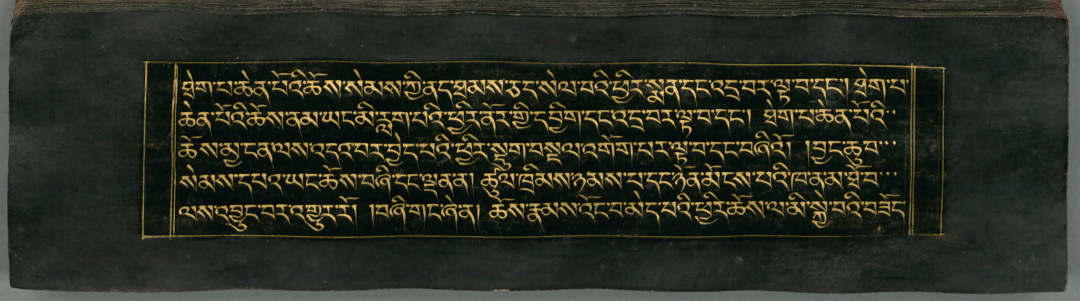 ཐེག་པ་ཆེན་པོའི་ཆོས་སེམས་ཀྱི་ནད་ཐམས་ཅད་སེལ་བའི་ཕྱིར་སྨན་དང་འདྲ་བར་ལྟ་བ་དང་། ཐེག་པ་
ཆེན་པོའི་ཆོས་ནམ་ཡང་མི་རླག་པའི་ཕྱིར་ནོར་གྱི་དབྱིག་དང་འདྲ་བར་ལྟ་བ་དང་། ཐེག་པ་ཆེན་པོའི་
ཆོས་མྱ་ངན་ལས་འདའ་བར་བྱེད་པའི་ཕྱིར་སྡུག་བསྔལ་འགོག་པར་ལྟ་བ་དང་བཞིའོ། །བྱང་ཆུབ་
སེམས་དཔའ་ཡང་ཆོས་བཞི་དང་ལྡན་ན། ཚུལ་ཁྲིམས་ཉམས་པ་དང་ཉོན་མོངས་པའི་ཁ་ན་མ་ཐོ་བ་
ལས་འབྱུང་བར་འགྱུར་རོ། །བཞི་གང་ཞེ་ན། ཆོས་རྣམས་འོང་བ་མེད་པའི་ཕྱིར་ཆོས་ལ་མི་སྐྱེ་བའི་བཟོད